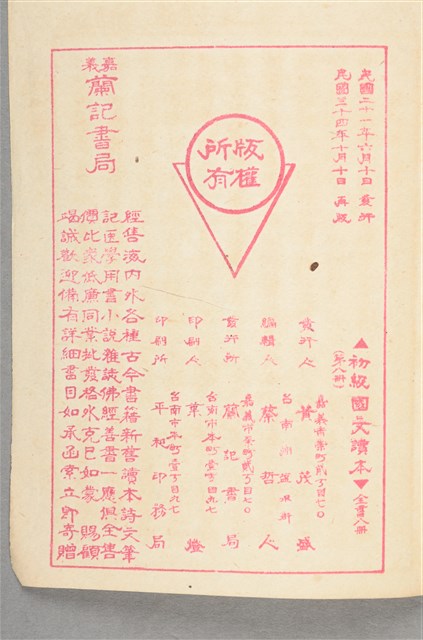 民國二十一年六月十日 發行
民國三十四年十月十日 再版
版權
所有
▲初級國文讀本▼全書八冊
(第八冊)
發行人 黃茂盛
嘉義市榮町貳丁目七〇
編輯人 蔡哲人
台南州
發行所 蘭記書局
嘉義市榮町貳丁目七〇
印刷人 葉燈
台南市本町壹丁目九七
印刷所 平和印務局
台南市本町壹丁目九七
嘉義
蘭記書局
經售海內外各種古今書籍新舊讀本詩文筆
記醫學用書小說雜誌佛經善書一應俱全售
價比眾低廉同業批發格外克己如蒙 賜顧
竭誠歡迎備有詳細書目如承函索立即寄贈